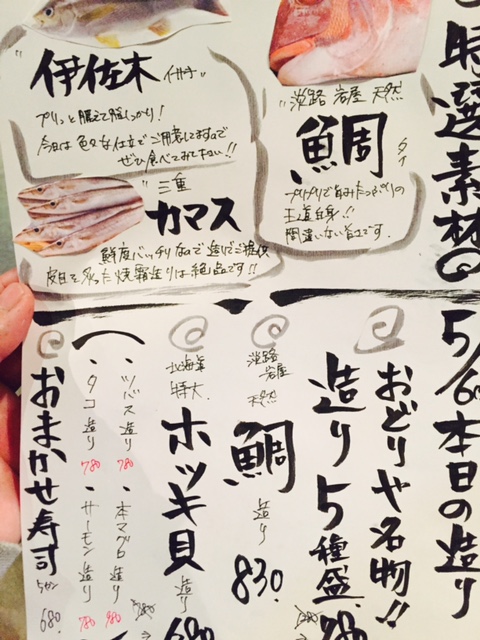 特選素材
淡路 岩屋 天然
鯛
タイ
プリプリで旨みたっぷりの
王道白身!!
間違いない旨さです。
伊佐木 イサキ
プリッと肥えて脂しっかり!
今日は色々な仕立てご用意してますので
ぜひ食べてみて下さい!!
三重
カマス
鮮度バッチリなので造りでご提供
皮目を炙った焼霜造りは絶品です!!
5/6 本日の造り
おどりや名物!!
造り5種盛
淡路
岩屋
天然
鯛
造り
830.
北海道
特大
ホッキ貝
造り
680
・ツバス造り 780
・本マグロ造り 980
・タコ造り 780
・サーモン造り 780
おまかせ寿司
5カン
680.